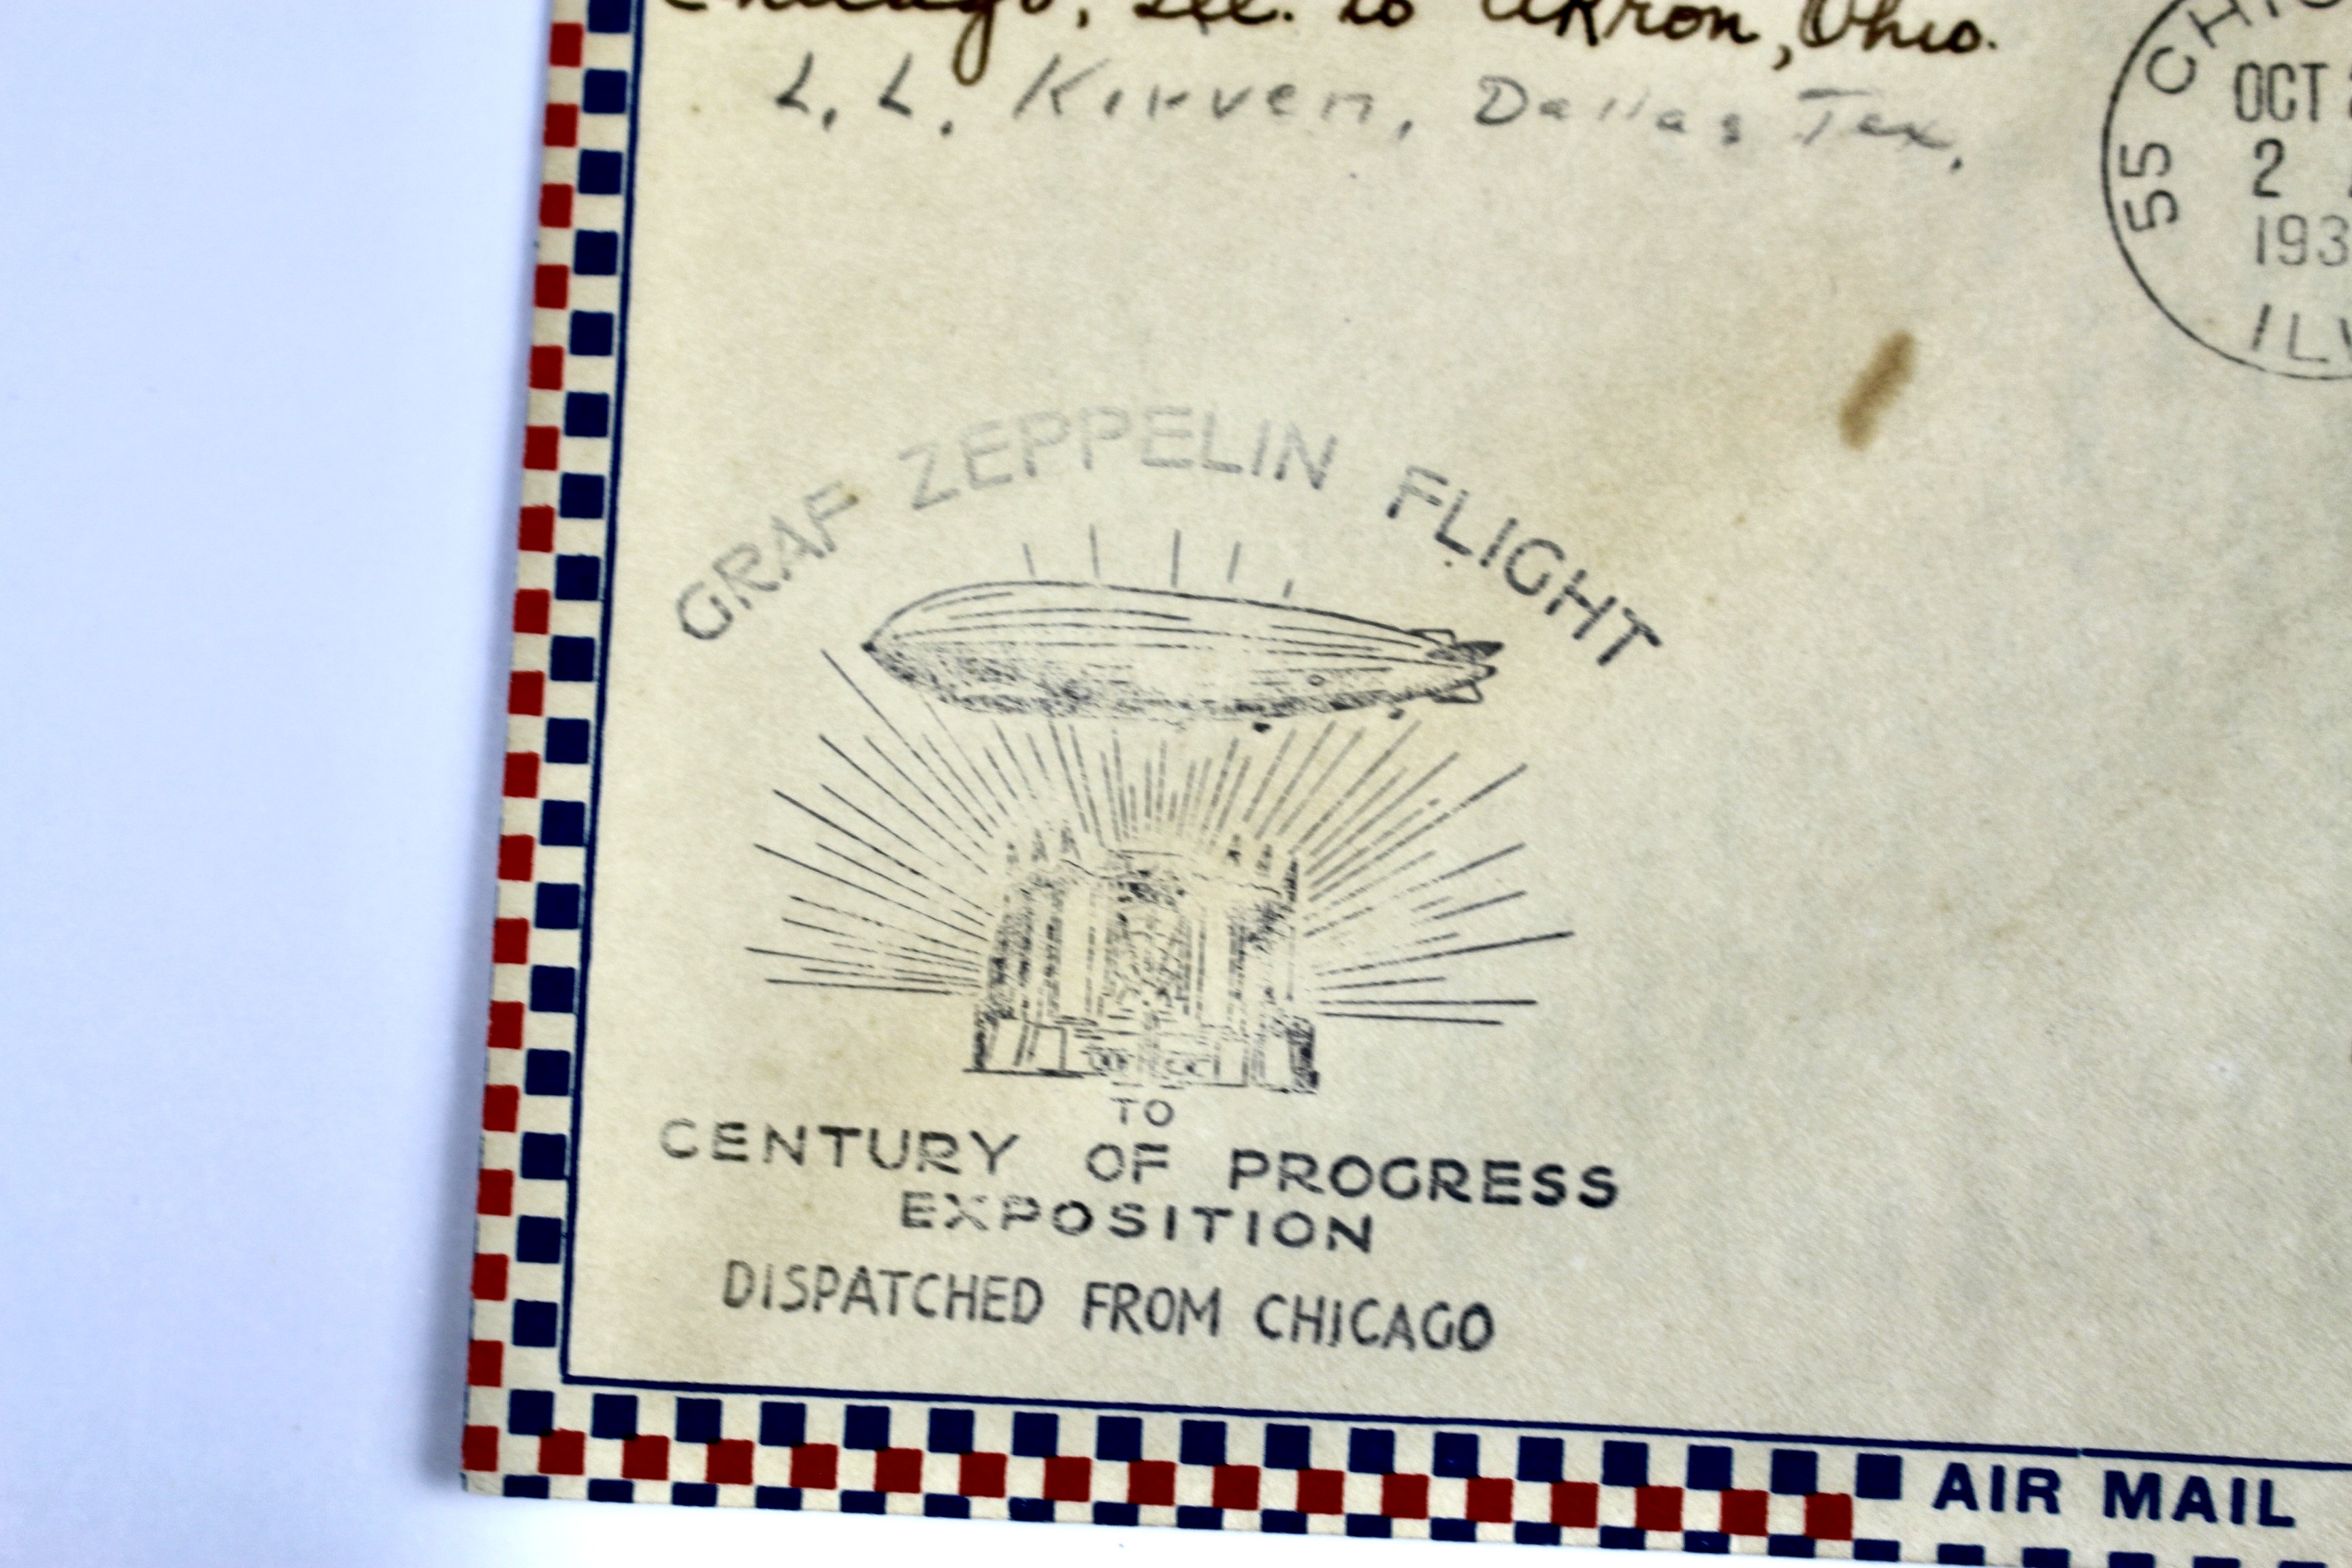 Chicago, Ill. to Akron, Ohio.
L. L. Kirven, Dallas Tex.
55 CHIC
OCT
2
193
ILL
GRAF ZEPPELIN FLIGHT
TO
CENTURY OF PROGRESS
EXPOSITION
DISPATCHED FROM CHICAGO
AIR MAIL